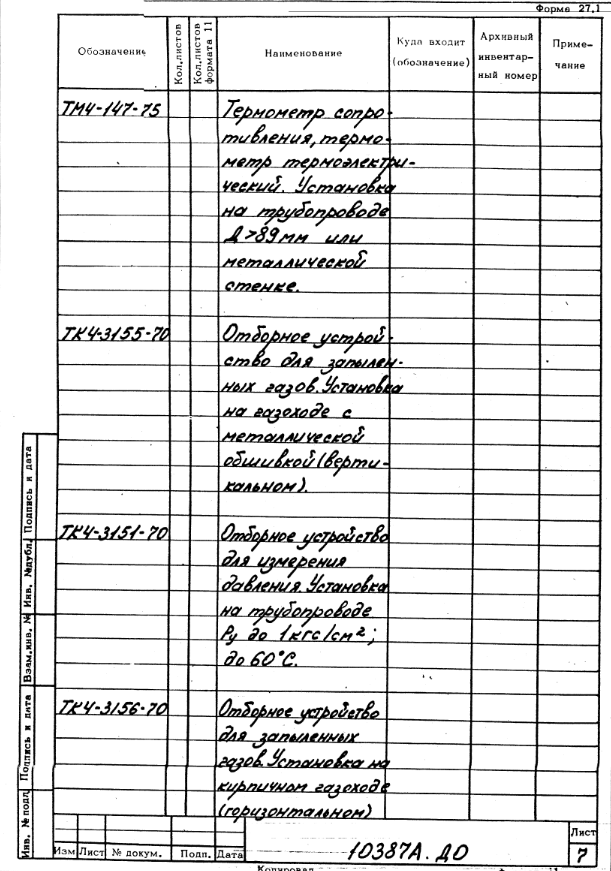 Форма 27.1
Обозначение
Кол.листов
Кол.листов формата 11
Наименование
Куда входит (обозначение)
Архивный инвентар-ный номер
Приме-чание
ТМ4-147-75
Термометр сопро-
тивления, термо-
метр термоэлектри-
ческий. Установка
на трубопроводе
Д>89мм или
металлической
стенке.
ТК4-3155-70
Отборное устрой-
ство для запылен-
ных газов. Установка
на газоходе с
металлической
обшивкой (верти-
кальном).
ТК4-3151-70
Отборное устройство
для измерения
давления. Установка
на трубопроводе
Ру до 1кгс/см²;
до 60°С.
ТК4-3156-70
Отборное устройство
для запыленных
газов. Установка на
кирпичном газоходе
(горизонтальном)
Инв. № подл.
Подпись и дата
Взам.инв. №
Инв. № дубл.
Подпись и дата
Изм Лист № докум. Подп. Дата
10387А.ДО
Лист
7
Копировал